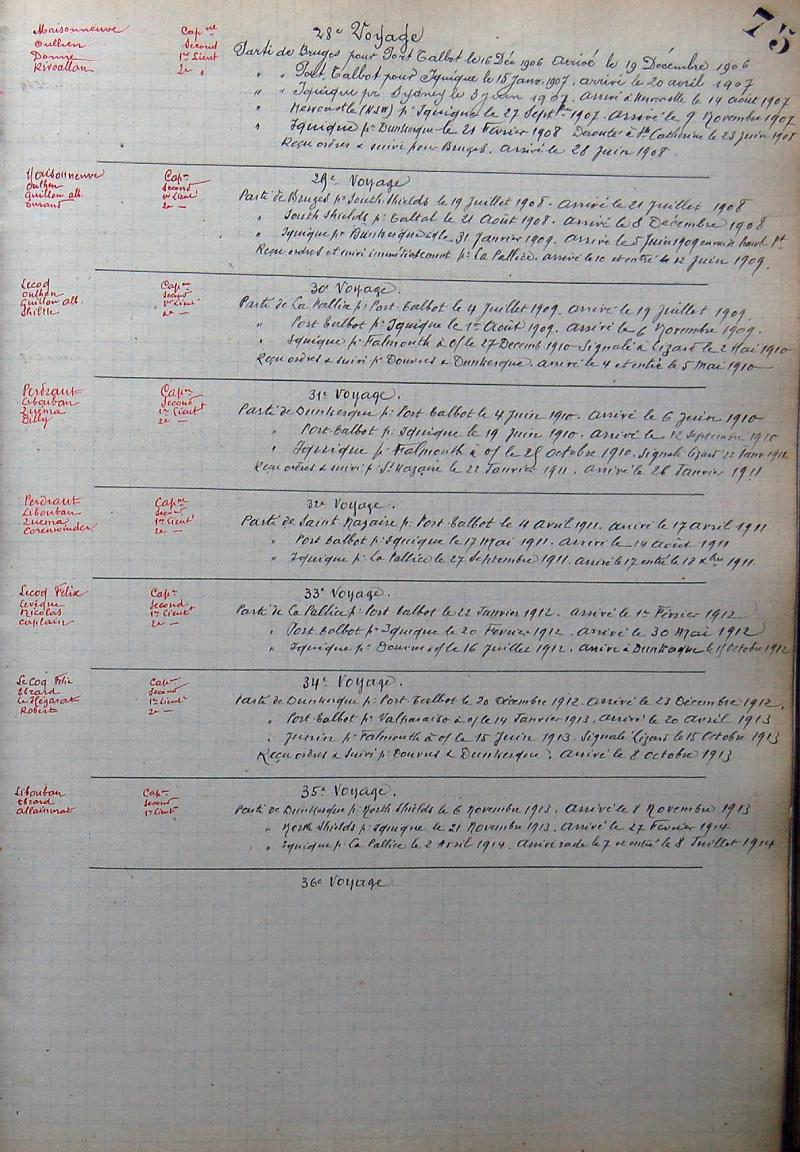 75
28e Voyage
Maisonneuve Capne
Oulhen Second
Donne 1er Lieut
Rivoallan 2e "
Parti de Bruges pour Port Talbot le 16 Déc 1906 Arrivé le 19 Décembre 1906
" " Port Talbot pour Iquique le 15 janv. 1907. arrivé le 20 avril 1907
" " Iquique pr Sydney le 3 juin 1907. Arrivé à Newcastle le 14 août 1907
" Newcastle (NSW) pr Iquique le 27 Septbre 1907. Arrivé le 9 Novembre 1907
" Iquique pr Dunkerque le 21 Février 1908 Déroute à Ste Catherine le 23 juin 1908
Reçu ordres & suivi pour Bruges. Arrivé le 28 Juin 1908.
29e Voyage
Maisonneuve Capne
Oulhen Second
Guillon alb. 1er Lieut
Durand 2e —
Parti de Bruges pr South Shields le 19 Juillet 1908. Arrivé le 21 Juillet 1908
" South Shields pr Taltal le 21 Août 1908. Arrivé le 8 Décembre 1908
" Iquique pr Dunkerque le 31 Janvier 1909. Arrivé le 5 Juin 1909
Reçu ordres et suivi immédiatement pr La Pallice. arrivé le 10 et entré le 12 Juin 1909.
30e Voyage.
Lecoq Capne
Oulhen Second
Guillon alb. 1er Lieut
2e —
Parti de La Pallice pr Port Talbot le 4 Juillet 1909. arrivé le 19 Juillet 1909.
" Port Talbot pr Iquique le 1er Août 1909. Arrivé le 6 Novembre 1909.
" Iquique pr Falmouth à o/ le 27 Décemb 1910 Signalé à Lizard le 2 Mai 1910
Reçu ordres & suivi pr Douvres & Dunkerque. arrivé le 4 et entré le 5 Mai 1910
31e Voyage.
Perdraut Capne
Libouban Second
Zuema 1er Lieut
Dilly 2e —
Parti de Dunkerque pr Port Talbot le 4 Juin 1910. Arrivé le 6 Juin 1910
" Port Talbot pr Iquique le 19 Juin 1910. Arrivé le 12 Septembre 1910
" Iquique pr Falmouth à o/ le 25 Octobre 1910. Signalé Lizard 22 Janv 1911
Reçu ordres & suivi pr St Nazaire le 22 Janvier 1911. Arrivé le 26 Janvier 1911
32e Voyage.
Perdraut Capne
Libouban Second
Zuema 1er Lieut
Corenwinder 2e —
Parti de Saint Nazaire pr Port Talbot le 4 Avril 1911. Arrivé le 17 Avril 1911
" Port Talbot pr Iquique le 17 Mai 1911. Arrivé le 14 Août 1911
" Iquique pr La Pallice le 27 Septembre 1911. Arrivé le 17 entré le 18 Xbre 1911.
33e Voyage.
Lecoq Félix Capne
Levêque Second
Nicolas 1er Lieut
Caplain 2e —
Parti de La Pallice pr Port Talbot le 22 Janvier 1912. arrivé le 1er Février 1912
" Port Talbot pr Iquique le 20 Février 1912. Arrivé le 30 Mai 1912
" Iquique pr Douvres à o/ le 16 Juillet 1912. Arrivé à Dunkerque le 15 Octobre 1912
34e Voyage.
Le Coq Félix Capne
Ebrard Second
Le Hégarat 1er Lieut
Robert 2e —
Parti de Dunkerque pr Port Talbot le 20 Décembre 1912. Arrivé le 23 Décembre 1912.
" Port Talbot pr Valparaiso à o/ le 14 Janvier 1913. Arrivé le 20 Avril 1913
" Junin pr Falmouth à o/ le 15 Juin 1913. Signalé Lizard le 15 Octobre 1913
Reçu ordres & suivi pr Douvres & Dunkerque. Arrivé le 8 Octobre 1913
35e Voyage.
Libouban Capne
Ebrard Second
Allainmat 1er Lieut
Parti de Dunkerque pr North Shields le 6 Novembre 1913. Arrivé le 8 Novembre 1913
" North Shields pr Iquique le 21 Novembre 1913. Arrivé le 27 Février 1914
" Iquique pr La Pallice le 2 Avril 1914. Arrivé rade le 7 et entré le 8 Juillet 1914
36e Voyage